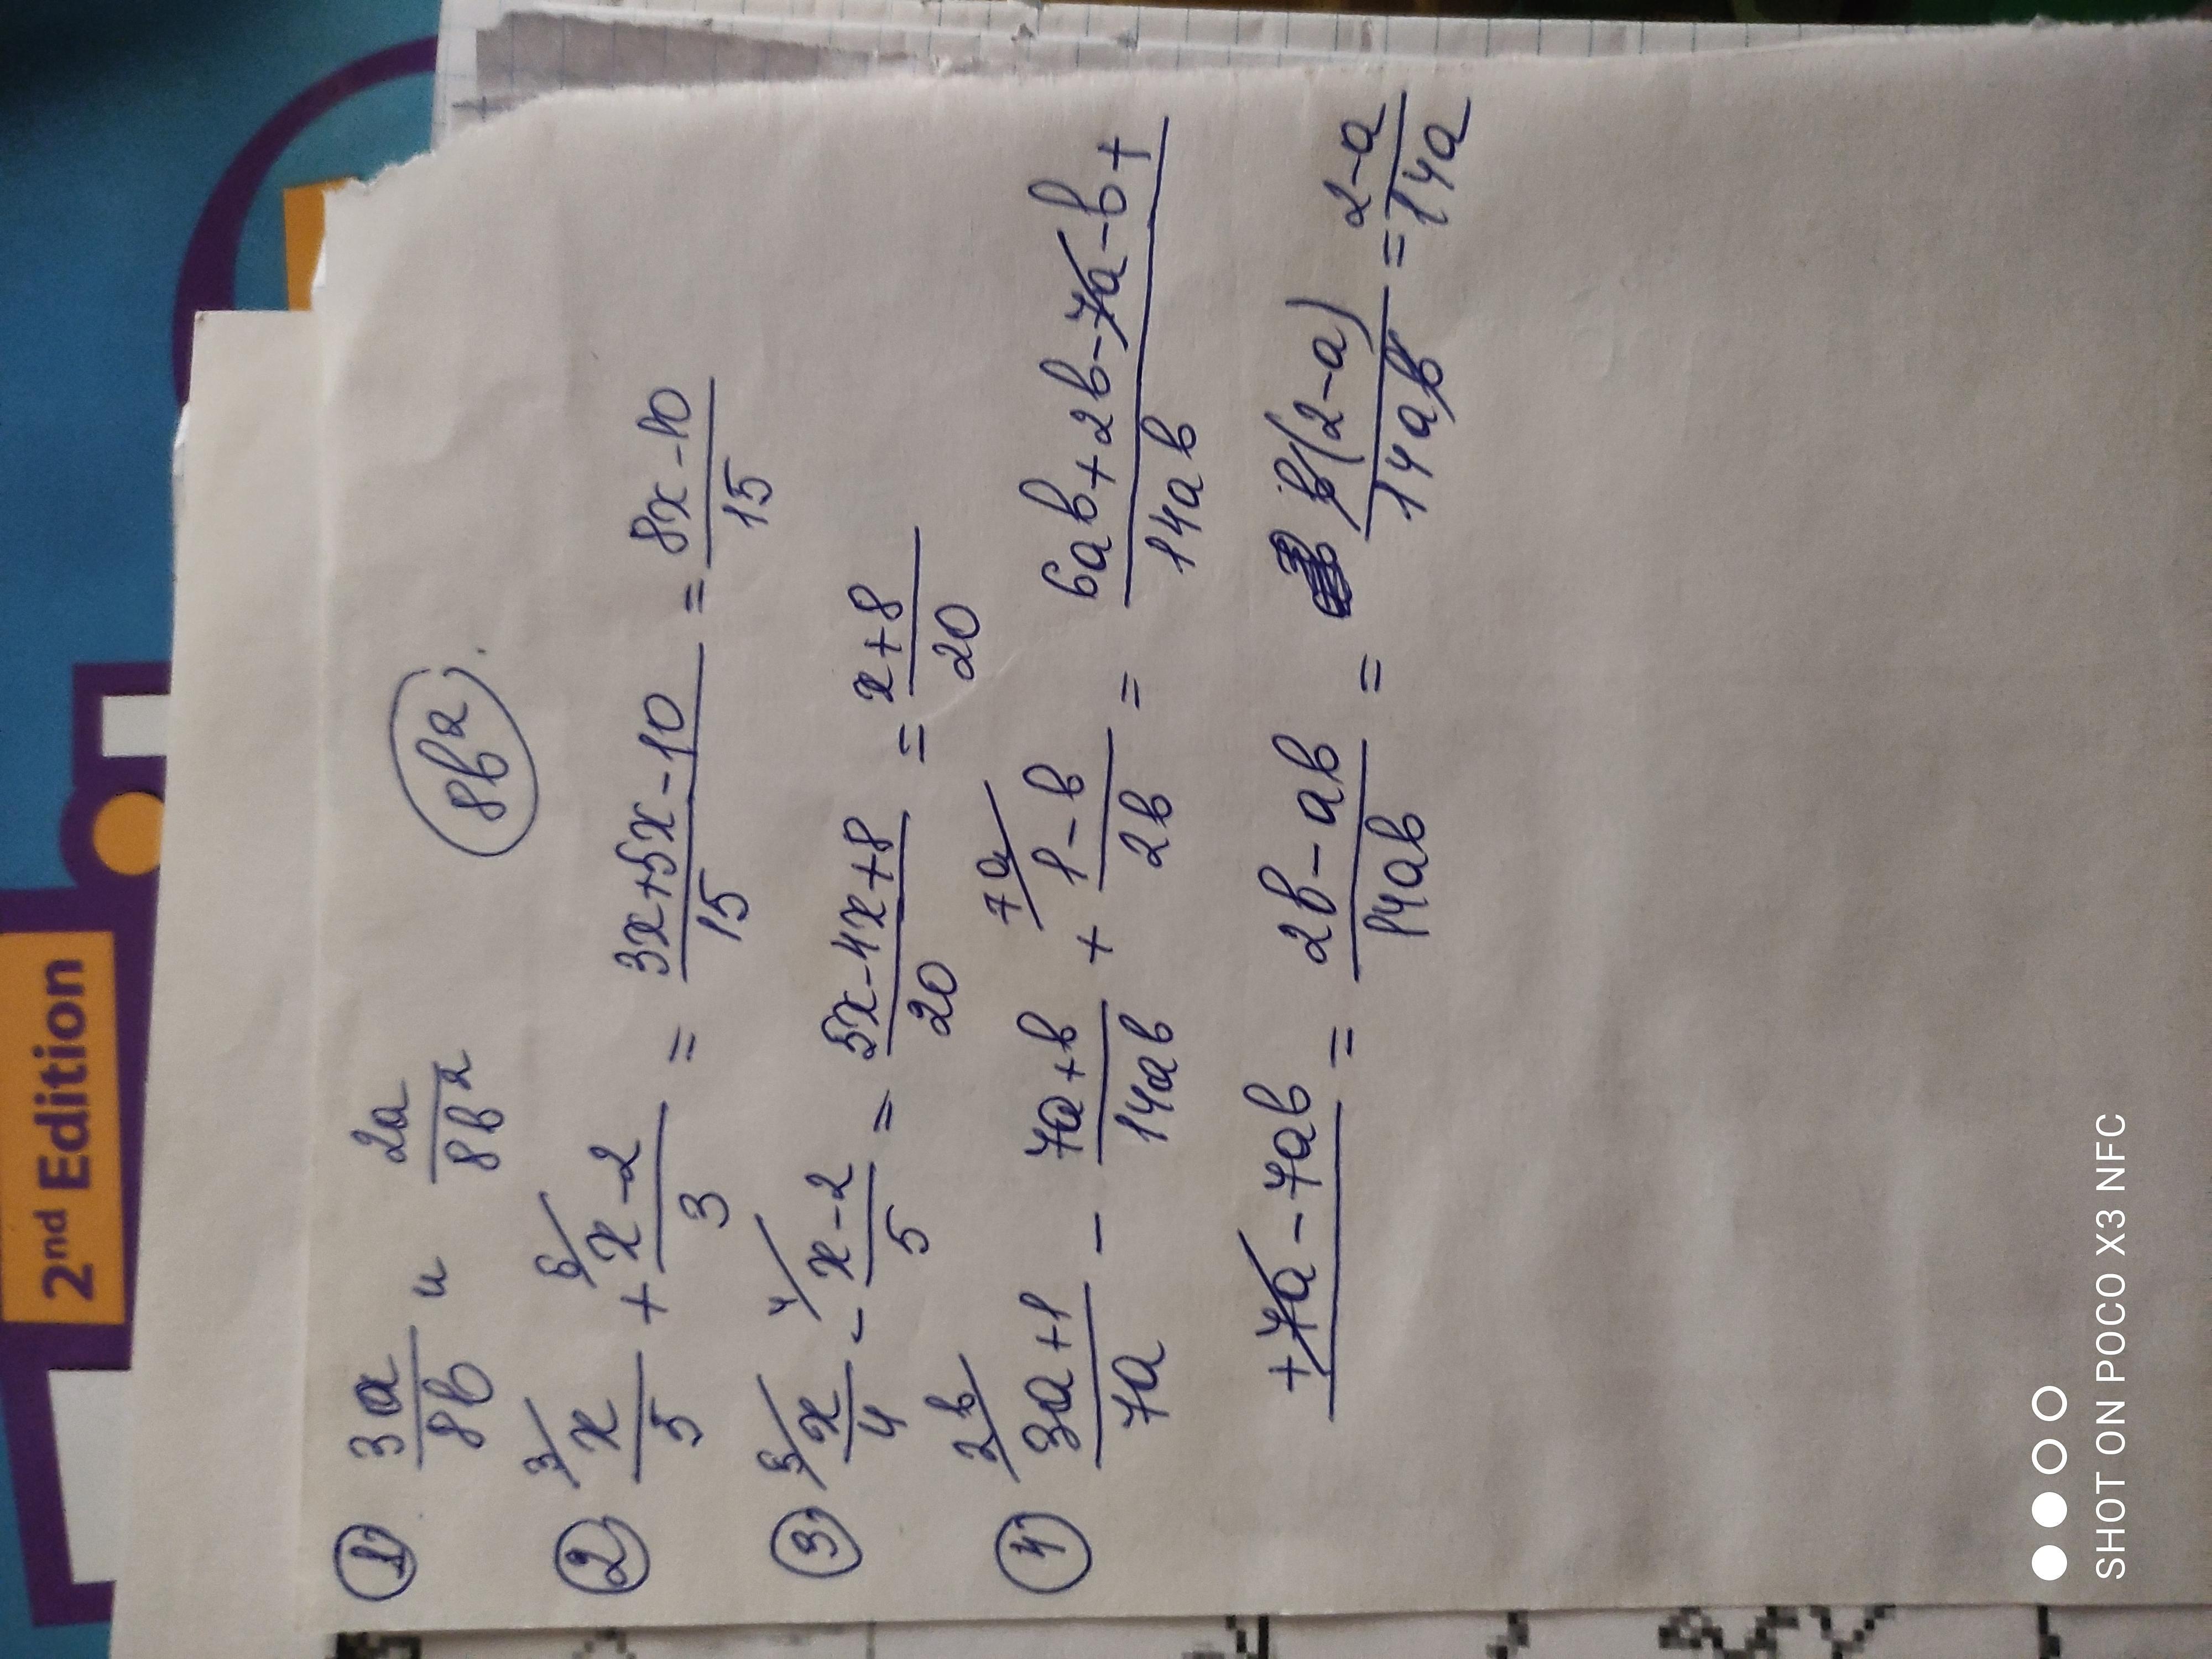 2nd Edition
① 3a/8b и 2a/8b² 8b².
② 3/ x/5 + 5/ x-2/3 = 3x+5x-10/15 = 8x-10/15
③ 5/ x/4 - 4/ x-2/5 = 5x-4x+8/20 = x+8/20
④ 2b/ 3a+1/7a - 7a+b/14ab + 7a/ 1-b/2b = 6ab+2b-7a-b+/14ab
+7a-7ab = 2b-ab/14ab = b(2-a)/14ab = 2-a/14a
SHOT ON POCO X3 NFC